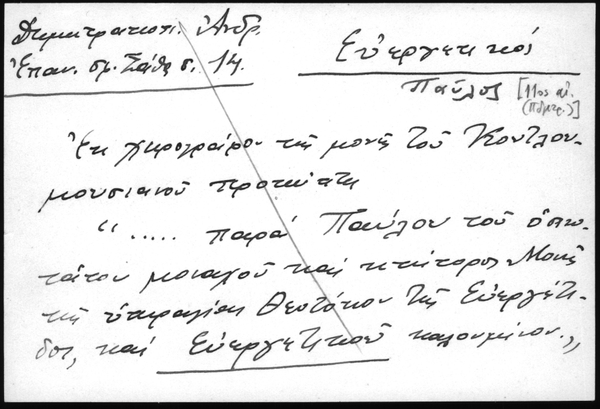 Δημητρακοπ. Ἀνδρ.
Ἐπαν. σμ. Σάθα σ. 14.
Εὐεργετικός
Παῦλος [11ος αἰ.
(Πόλεως.)]
Ἐκ χειρογράφου τῆς μονῆς τοῦ Κουτλου-
μουσιανοῦ προτάσσεται
“..... παρά Παύλου τοῦ ὁσιω-
τάτου μοναχοῦ καί κτήτορος Μονῆς
τῆς ὑπεραγίας Θεοτόκου τῆς Εὐεργέτι-
δος, καί Εὐεργετικοῦ καλουμένου.„